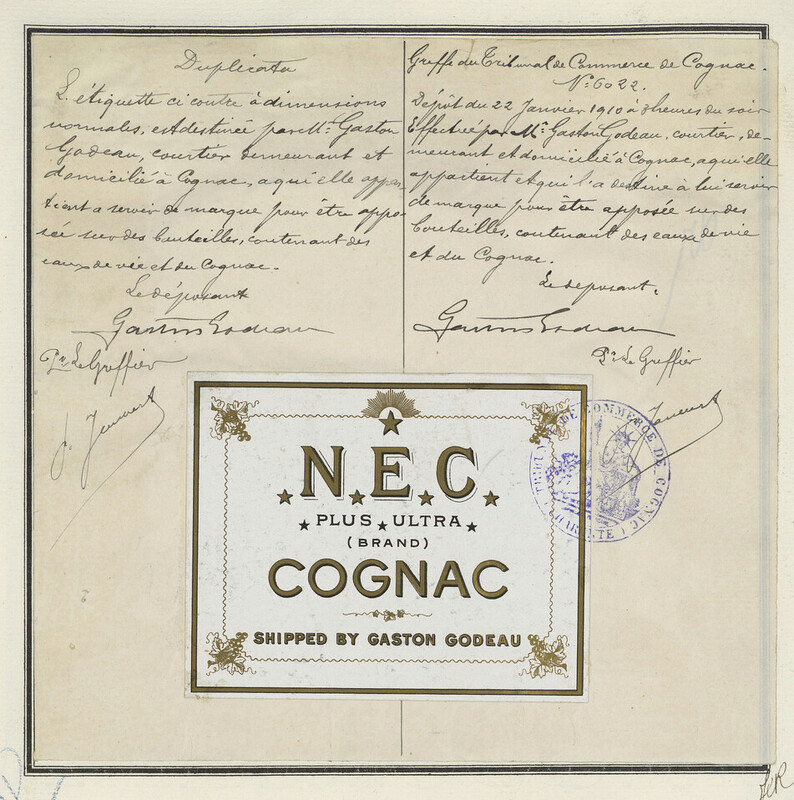 Duplicata
L'étiquette ci contre à dimensions
normales, est destinée par Mr. Gaston
Godeau, courtier demeurant et
domicilié à Cognac, à qui elle appar
tient a servir de marque pour être appo-
sée sur des bouteilles, contenant des
eaux de vie et du Cognac.
Le déposant
Gaston Godeau
Pr. Le Greffier
Greffe du Tribunal de Commerce de Cognac.
No. 6022.
Dépôt du 22 Janvier 1910 à 3 heures du soir
Effectué par Mr. Gaston Godeau, courtier, de-
meurant et domicilié à Cognac, a qui elle
appartient et qui l'a destine à lui servir
de marque pour être apposée sur des
bouteilles, contenant des eaux de vie
et du Cognac.
Le déposant.
Gaston Godeau
Pr. Le Greffier
N.E.C.
PLUS ULTRA
(BRAND)
COGNAC
SHIPPED BY GASTON GODEAU
TRIBUNAL DE COMMERCE DE COGNAC
CHARENTE